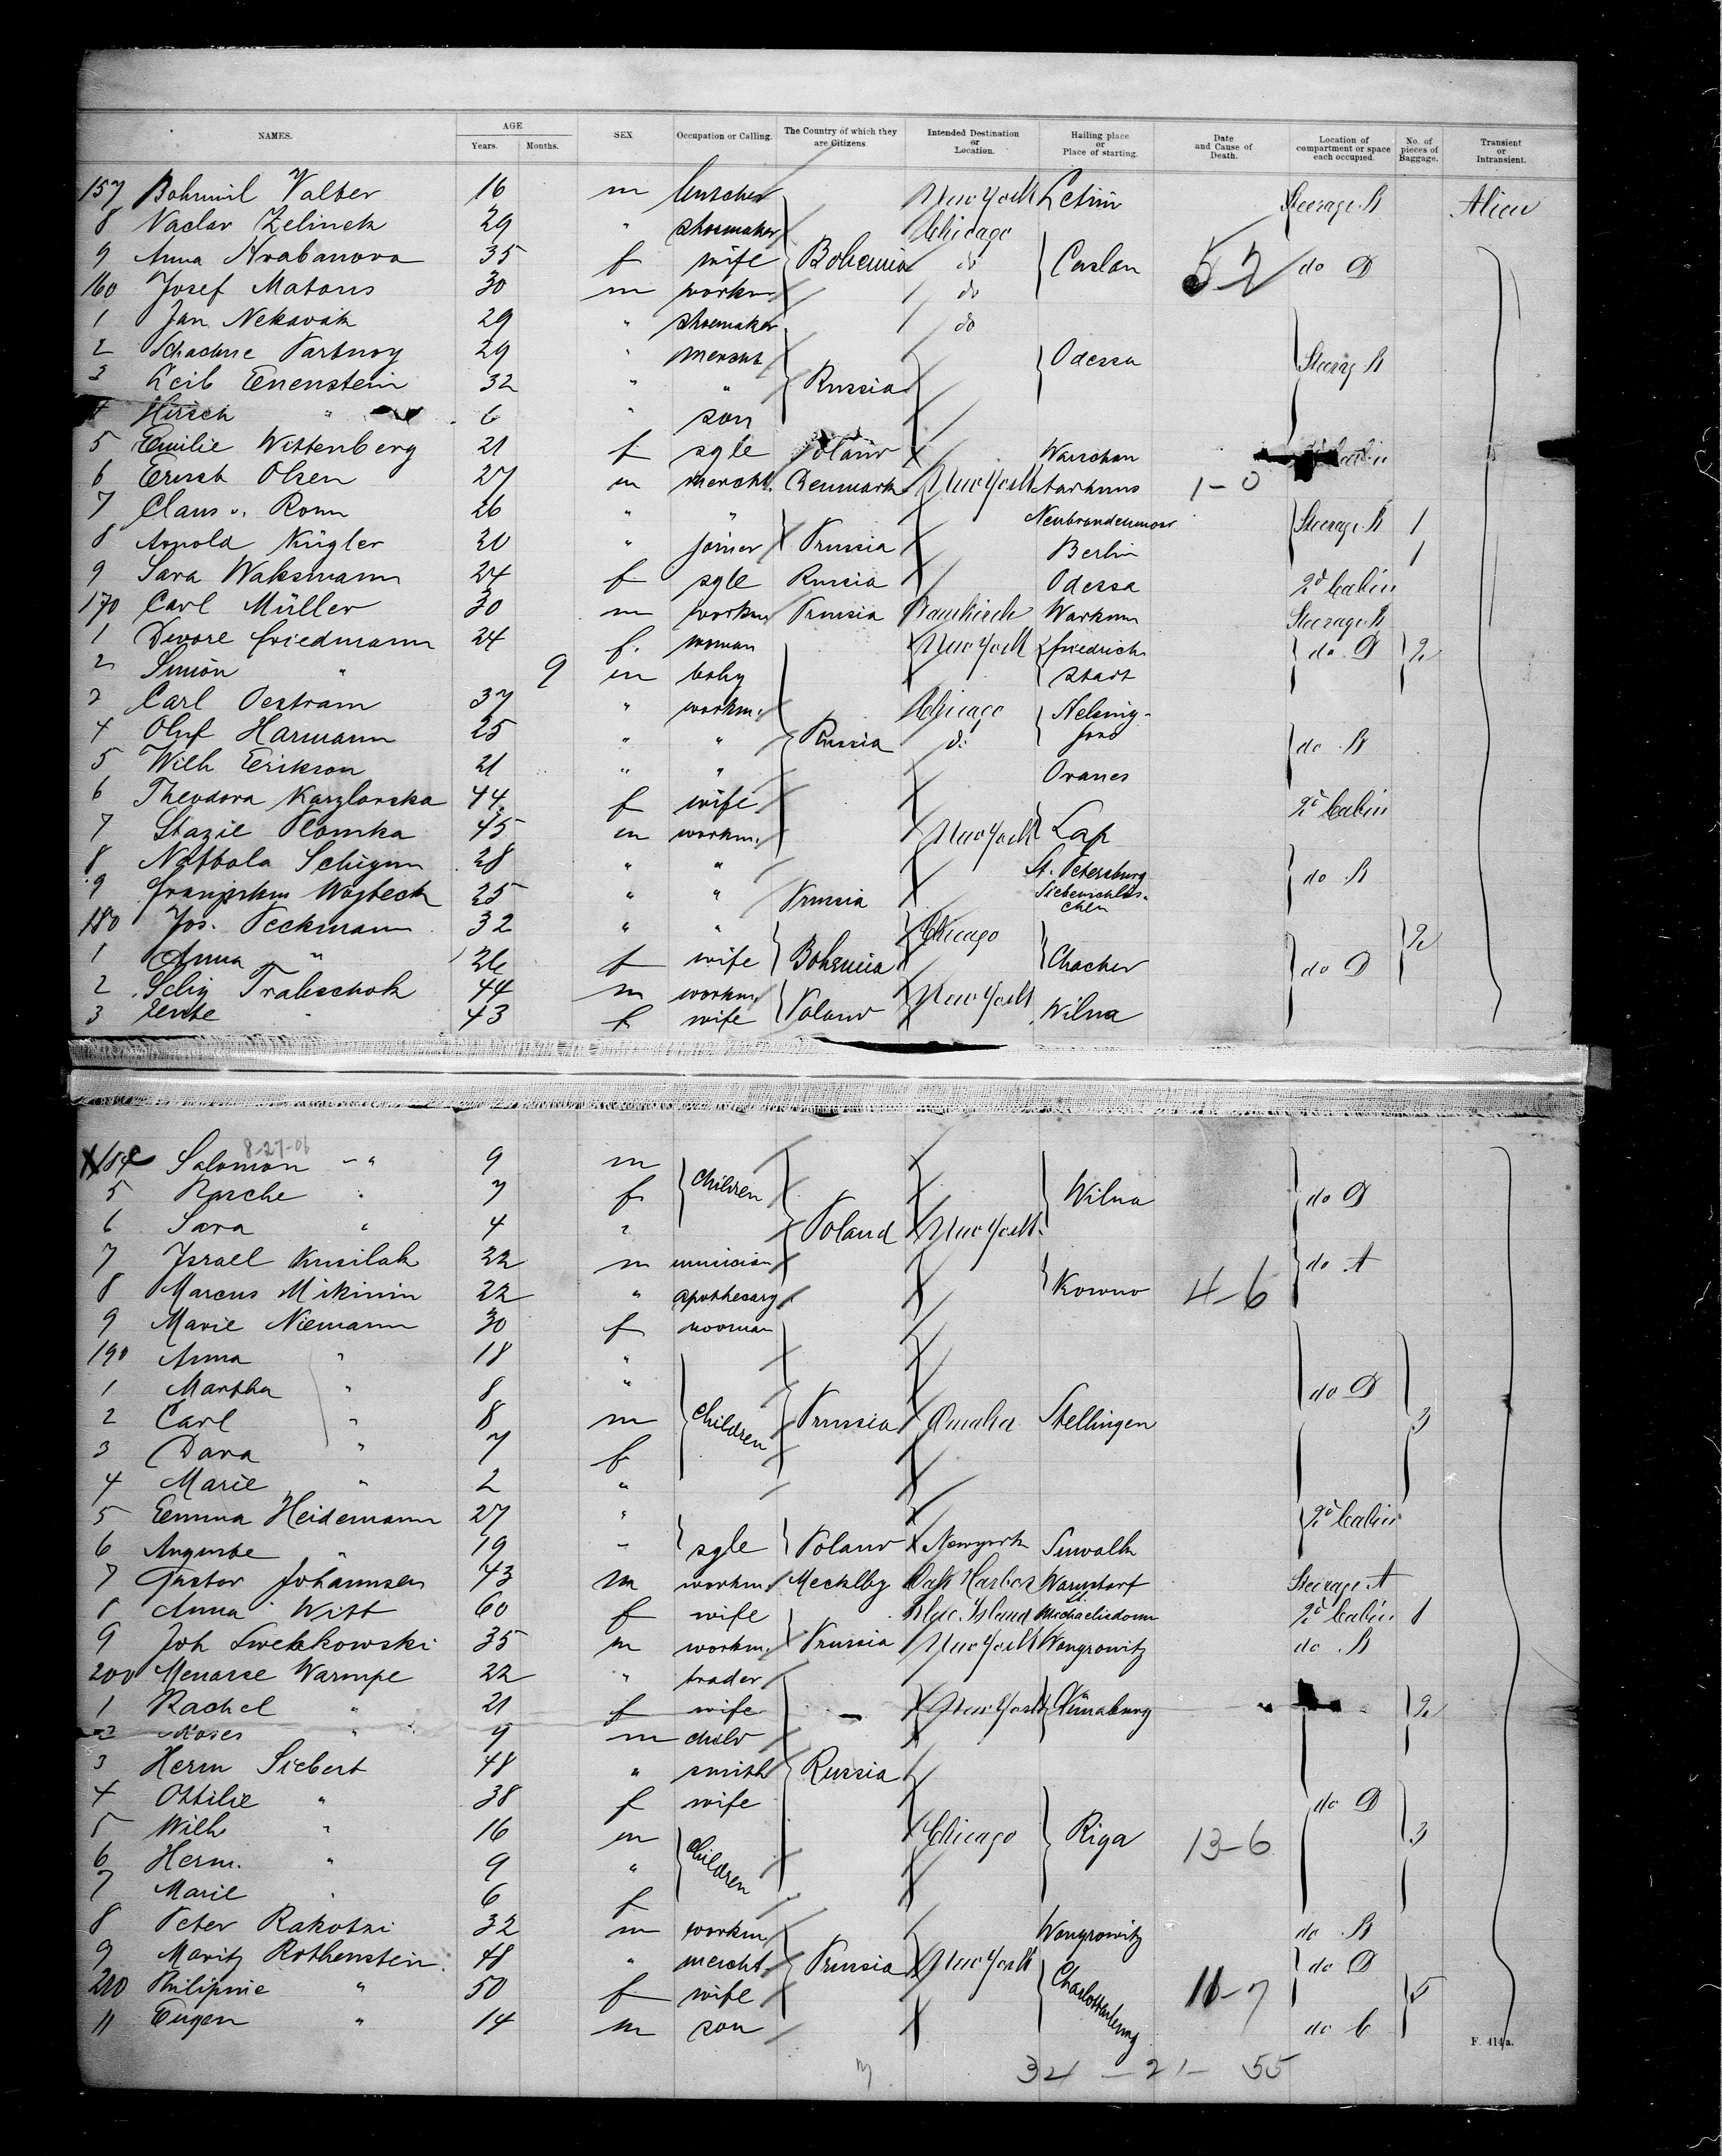 NAMES. AGE Years. Months. SEX Occupation or Calling. The Country of which they are Citizens. Intended Destination or Location. Hailing place or Place of starting. Date and Cause of Death. Location of compartment or space each occupied. No. of pieces of Baggage. Transient or Intransient.
157 Bohumil Valter 16 m New York Steerage Alien
8 Vaclav Zelinek 29 " shoemaker Chicago
9 Anna Hrabanova 35 f wife Bohemia do Caslau 5-2 do D
160 Josef Matous 30 m workm do
1 Jan Nekavak 29 " shoemaker do
2 Partnoy 29 " mercht Odessa Steerag
3 Leib Eenenstein 32 " " Russia
4 Hirsch " 6 " son
5 Emilie Wittenberg 21 f sgle Warschau
6 Olsen 27 m mercht. Denmark New York Aarhuus 1-0
7 Claus v. Ronn 26 " " Steerage 1
8 Arnold Kügler 20 " joiner Prussia Berlin 1
9 Sara Waksmann 24 f sgle Russia Odessa 2d Cabin
170 Carl Müller 30 m workm Prussia Steerage
1 Dwore Friedmann 24 f. woman New York Friedrich do D 2
2 Simon " 9 m baby stadt
3 Carl Oestram 37 " workm. Chicago Helsing-
4 Oluf Harmann 25 " " Russia do fors do
5 Wilh Erikson 21 " "
6 Theodora Karzlovska 44 f wife 2d Cabin
7 Stazie Plomka 45 m workm. New York Lap
8 28 " " St. Petersburg do
9 25 " " Prussia
180 Jos. Peckmann 32 " " Chicago 2
1 Anna " 26 f wife Bohemia do D
2 44 m workm. Poland New York
3 43 f wife Wilna
8-27-06
184 Salomon " 9 m children
5 Rasche " 7 f Wilna do D
6 Sara " 4 " Poland New York
7 Israel Kusilak 22 m musician do A
8 Marcus Mikinin 22 " apothecary Kowno 4-6
9 Marie Niemann 30 f woman
190 Anna " 18 "
1 Martha " 8 " do D
2 Carl " 8 m children Prussia Omaha Stellingen 3
3 Dora " 7 f
4 Marie " 2 "
5 Emma Heidemann 27 " 2d Cabin
6 Auguste " 19 " sgle Poland Newyork Suwalk
7 Gustav Johannsen 43 m workm. Mecklbg Oak Harbor Warnstorf Steerage A
8 Anna Witt 60 f wife Island Michaelisdonn 2d Cabin 1
9 Joh Swetkowski 35 m workm. Prussia New York Wongrowitz do
200 Menasse Warmpe 22 " trader
1 Rachel " 21 f wife New York Dünaburg 2
2 Moses " 9 m child
3 Herm Siebert 48 " smith Russia
4 Ottilie " 38 f wife do D
5 Wilh " 16 m children Chicago Riga 13-6 3
6 Herm. " 9 "
7 Marie " 6 f
8 Peter Rakotzi 32 m workm Wongrowitz do
9 Moritz Rothenstein 48 " mercht. Prussia New York do D
210 Philipine " 50 f wife Charlottenburg 11-7 5
11 Eugen " 14 m son do
F. 414a.
34 - 21 - 55